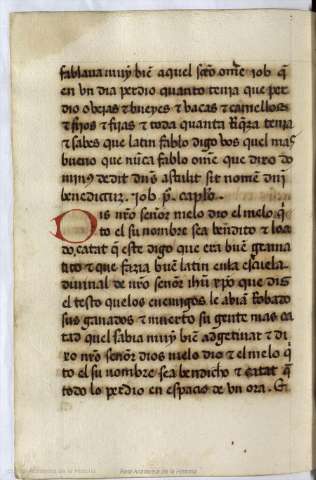 fablaua muy bie͂ aquel sc͂to om̃e iob q̃
en vn dia perdio quanto tenja que per
dio oveias & bueyes & vacas & camellos
& fijos & fijas & toda quanta Riq̃za tenja
& sabes que latin fablo digo vos quel mas
bueno que nu͂ca fablo om̃e que dixo do
mjnus dedit dn͂s astulit sit nomen dnj͂
benedictum . iob p͂. caplo .
Dis nr͂o señor melo dio el melo q̃
to el su nombre sea be͂ndito & loa
do, catat q̃ este digo que era bue͂ grama
tico & que faria bue͂ latin enla escuela
diuinal de nr͂o señor ihu͂ xp͂o que dis
el testo quelos enemigos le abia͂ Robado
sus ganados & muerto su gente mas ca
tad quel sabia muy bie͂ adgetiuar & di
xo nr͂o señor dios melo dio & el melo q̃
to el su nombre sea bendicho & catat q̃
todo lo perdio en espacio de vn ora . &
Real Academia de la Historia